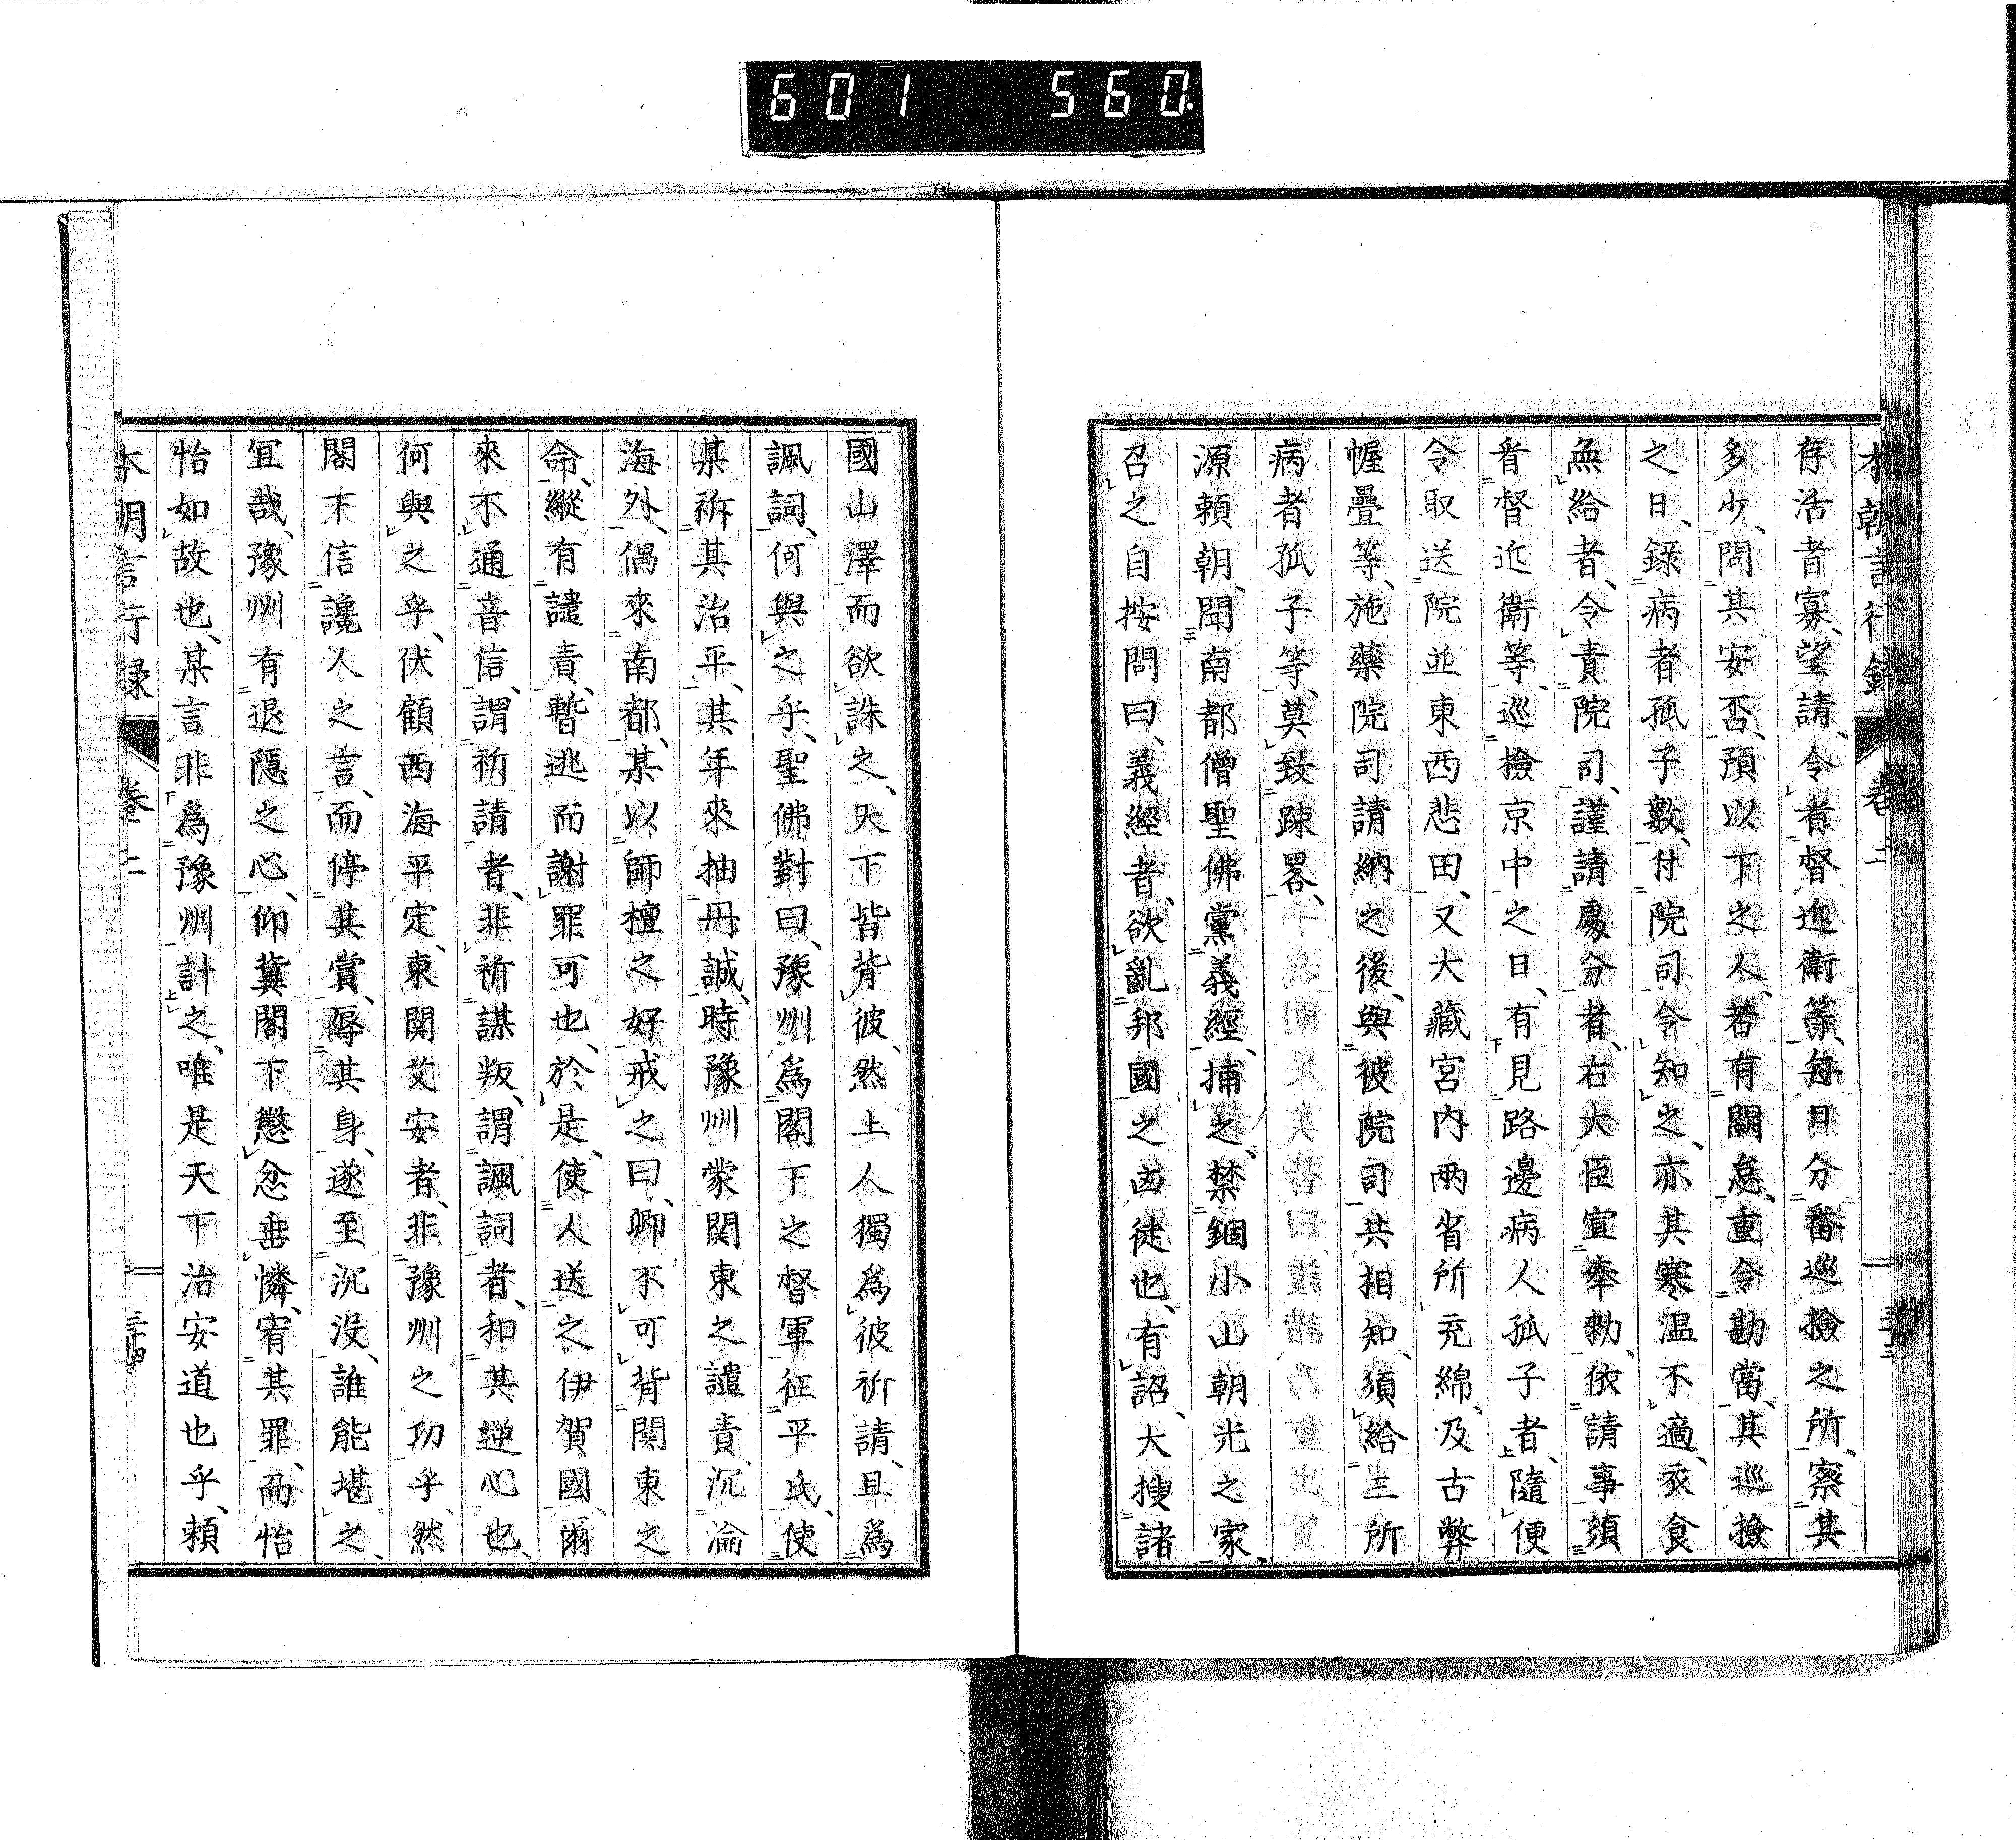 601 560.
存活者寡、望請、令者督近衛等、每日分番巡撿之所、察其
多少、問其安否、預以下之人、若有闕怠、重令勘當、其巡撿
之日、錄病者孤子數、付院司令知之、亦其寒溫不適、衣食
無給者、令責院司、謹請處分者、右大臣宣奉勅、依請事須
看督近衛等、巡撿京中之日、有見路邊病人孤子者、隨便
令取送院並東西悲田、又大藏宮內兩省所充綿、及古弊
幄疊等、施藥院司請納之後、與彼院司共相知、須給三所
病者孤子等、莫致踈畧、
源賴朝、聞南都僧聖佛黨義經、捕之、禁錮小山朝光之家、
召之自按問曰、義經者、欲亂邦國之凶徒也、有詔、大搜諸
國山澤而欲誅之、天下皆背彼、然上人獨為彼祈請、且為
諷詞、何與之乎、聖佛對曰、豫州為閤下之督軍征平氏、使
某祈其治平、其年來抽丹誠、時豫州蒙関東之譴責、沉淪
海外、偶來南都、某以師檀之好、戒之曰、卿不可背関東之
命、縱有譴責、暫逃而謝罪可也、於是、使人送之伊賀國、爾
來不通音信、謂祈請者、非祈謀叛、謂諷詞者、和其逆心也、
何與之乎、伏顧西海平定、東関艾安者、非豫州之功乎、然
閤下信讒人之言、而停其賞、辱其身、遂至沉沒、誰能堪之、
宜哉、豫州有退隱之心、仰冀閤下懲忿垂憐、宥其罪、而怡
怡如故也、某言非為豫州計之、唯是天下治安道也乎、賴
本朝言行録 卷上 三十四